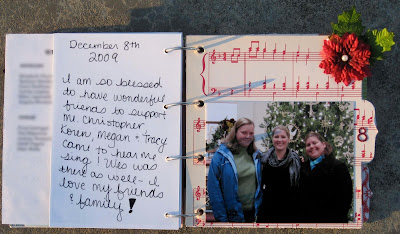 December 8th
2009
I am so blessed
to have wonderful
friends to support
me. Christopher
Loren, Megan & Tracy
came to hear me
sing! Wes was
there as well- I
love my friends
& family!
8